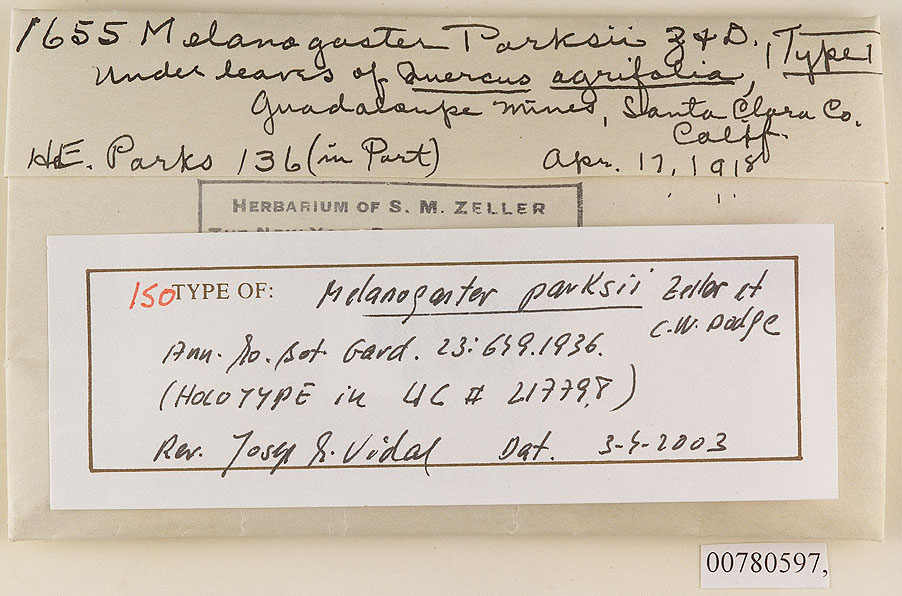 1655 Melanogaster Parksii Z & D., Type
Under leaves of Quercus agrifolia,
Guadaloupe Mines, Santa Clara Co.
Calif.
H.E. Parks 136 (in Part) Apr. 17, 1918
HERBARIUM OF S. M. ZELLER
ISOTYPE OF: Melanogaster parksii Zeller et
C.W. Dodge
Ann. Mo. Bot. Gard. 23: 649. 1936.
(HOLOTYPE in UC # 217798)
Rev. Josep M. Vidal Dat. 3-4-2003
00780597,